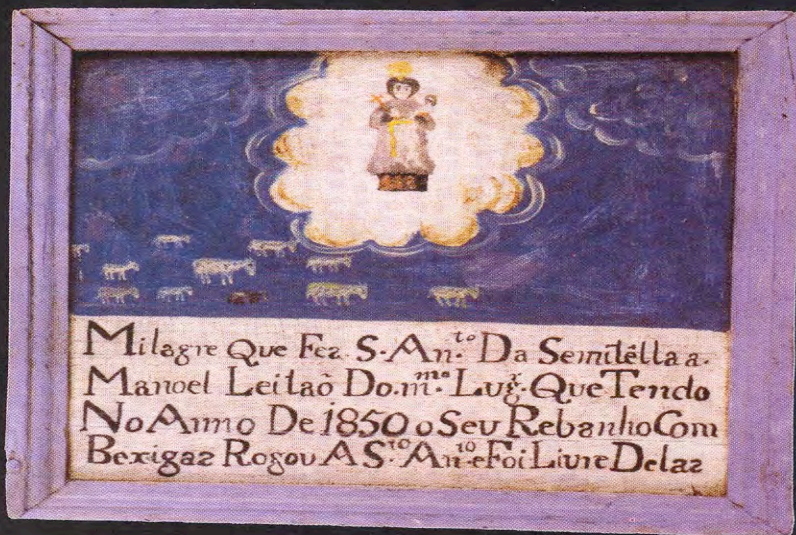 Milagre Que Fez S. An.to Da Semitélla a.
Manoel Leitaõ Do.m.mo Lug.r Que Tendo
No Anno De 1850 o Seu Rebanho Com
Bexigaz Rogou A S.to An.to e Foi Livre Delaz